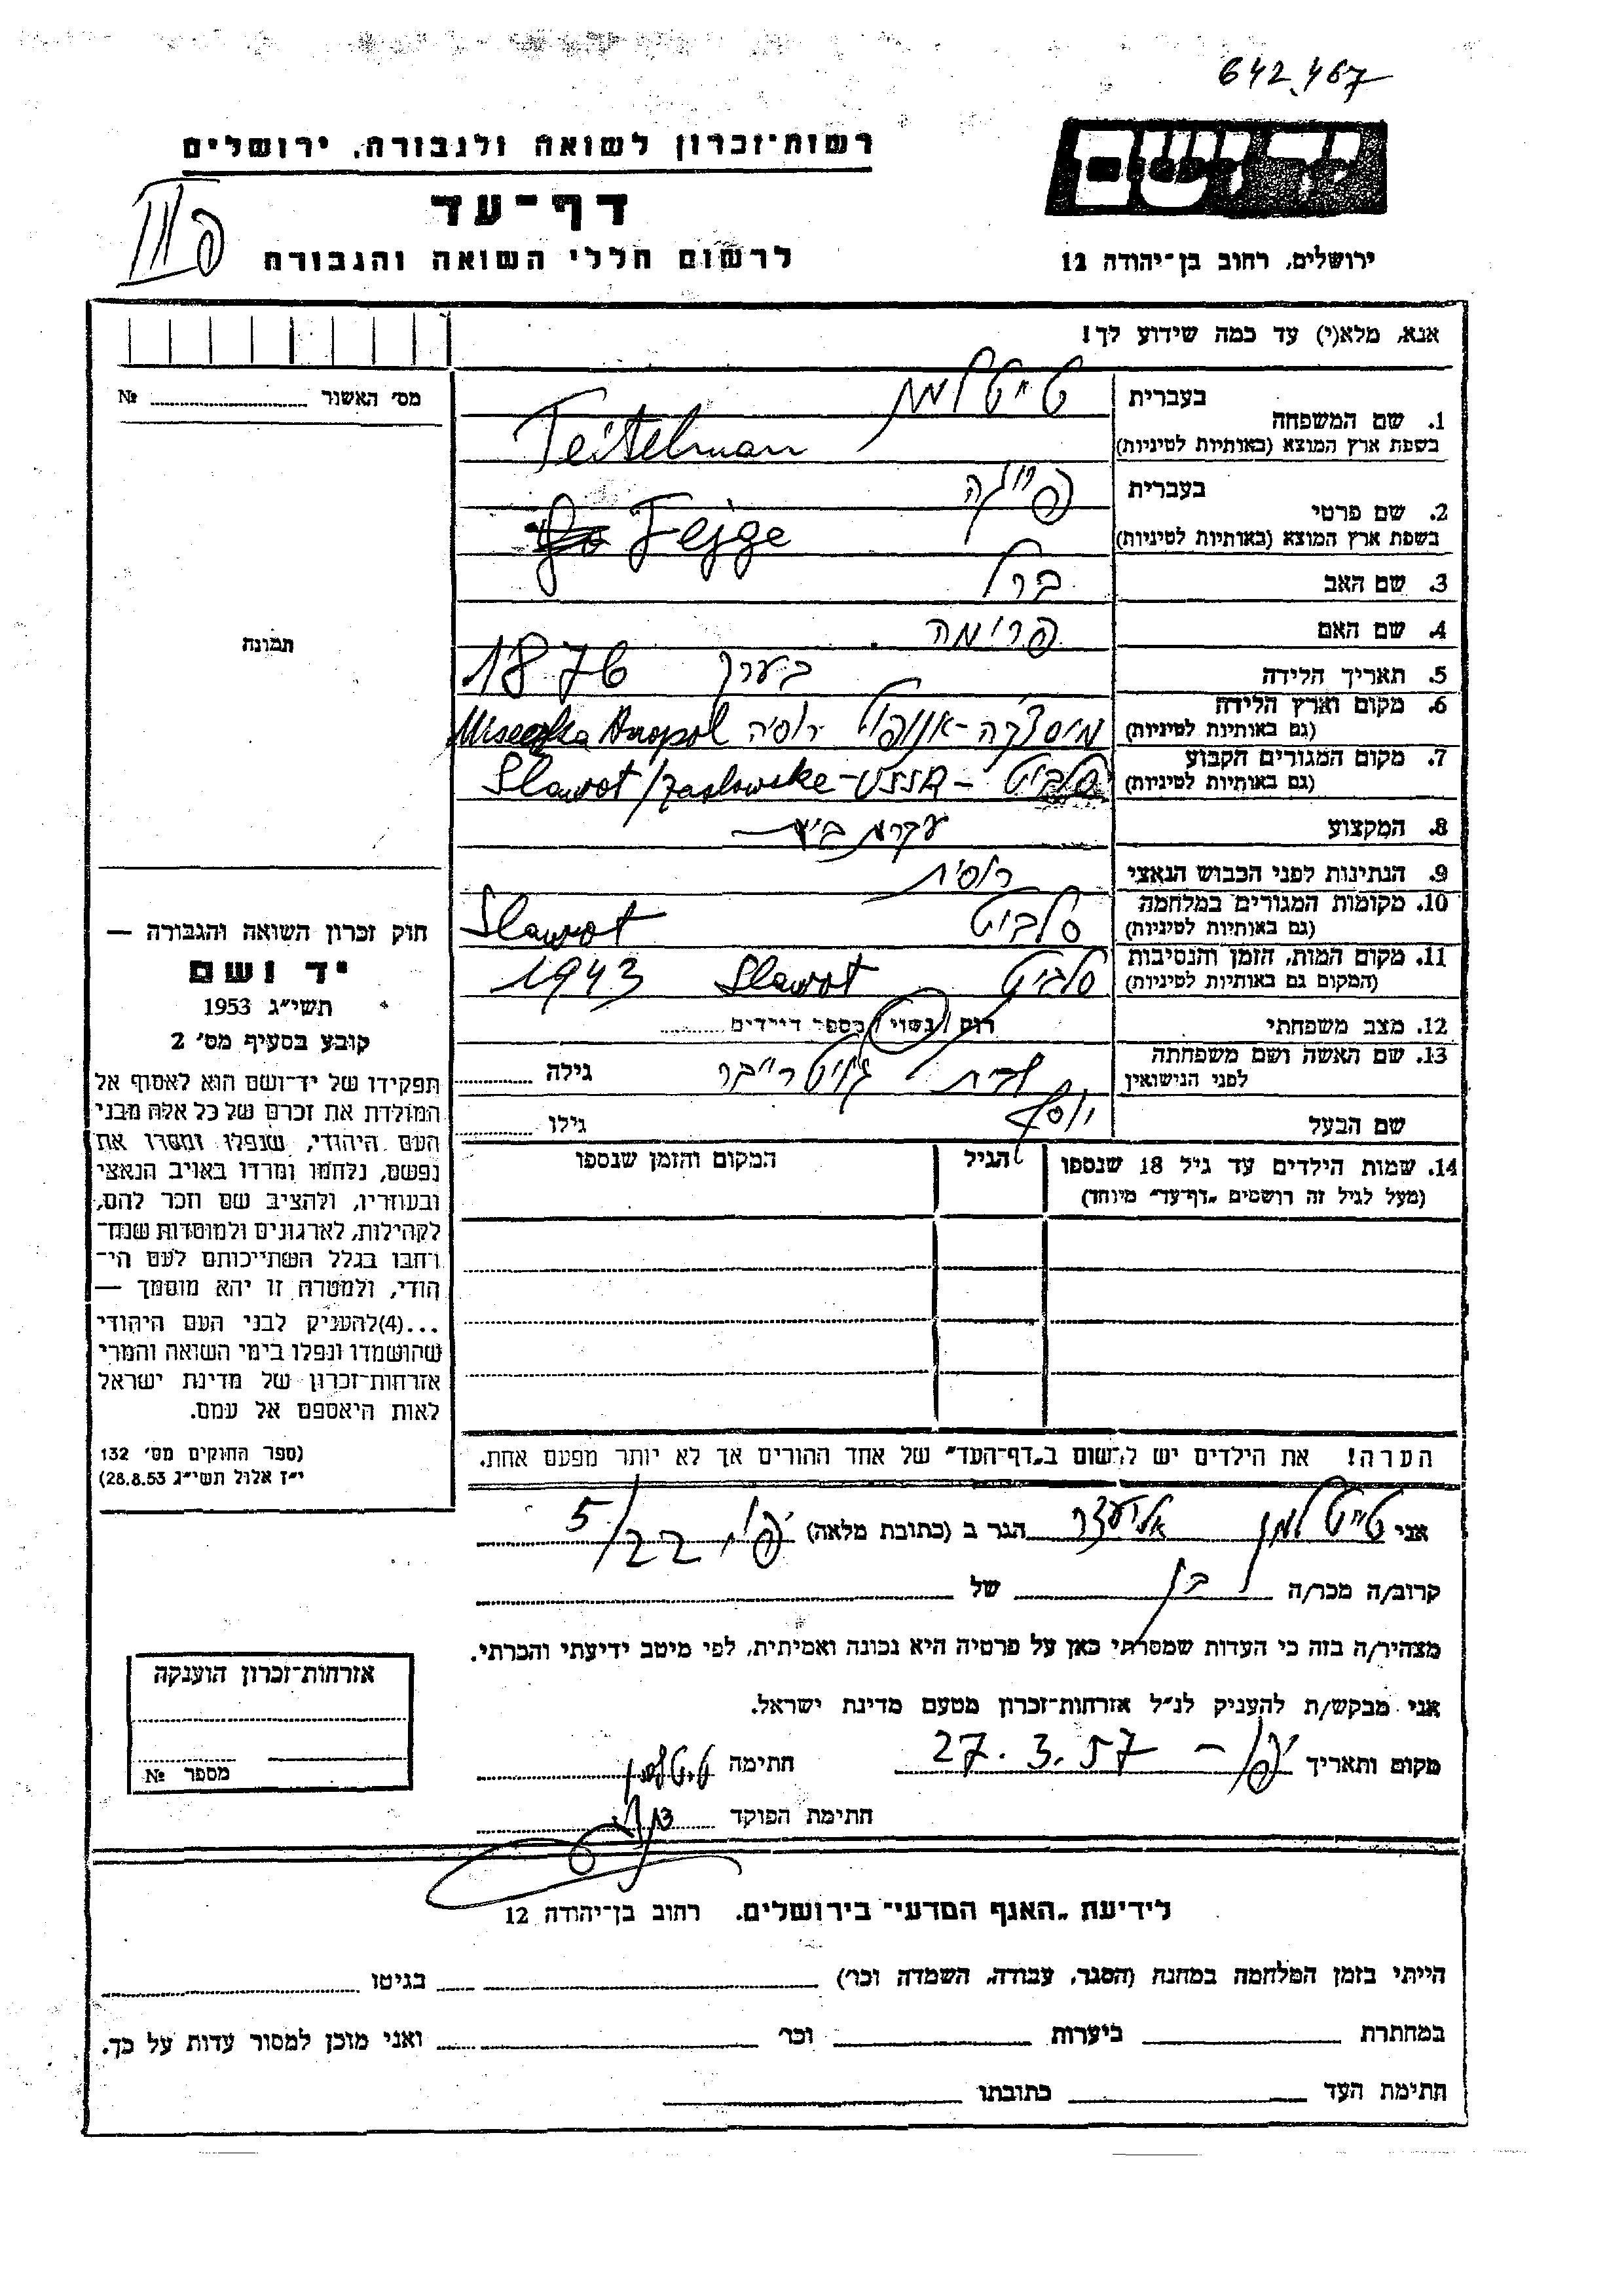 642.467
רשות־זכרון לשואה ולגבורה, ירושלים
יד ושם
דף־עד
לרשום חללי השואה והגבורה
ירושלים, רחוב בן־יהודה 12
אנא, מלא(י) עד כמה שידוע לך!
מס׳ האשור № 
1. שם המשפחה בעברית טייטלמן
בשפת ארץ המוצא (באותיות לטיניות) Teitelman
2. שם פרטי בעברית פייגה
בשפת ארץ המוצא (באותיות לטיניות) Fejge
3. שם האב ברל
4. שם האם פרומה
5. תאריך הלידה בערך 1876
6. מקום וארץ הלידה (גם באותיות לטיניות) אנופול רוסיה Anopol
7. מקום המגורים הקבוע (גם באותיות לטיניות) סלביט – USSR – Slawot/Zaslowske
8. המקצוע עקרת בית
9. הנתינות לפני הכבוש הנאצי רוסית
10. מקומות המגורים במלחמה (גם באותיות לטיניות) סלביט Slawot
11. מקום המות, הזמן והנסיבות (המקום גם באותיות לטיניות) סלביט Slawot 1943
12. מצב משפחתי רווק / נשוי / מספר דיידים
13. שם האשה ושם משפחתה לפני הנישואין לבית גילה
שם הבעל יוסף גילו
14. שמות הילדים עד גיל 18 שנספו הגיל המקום והזמן שנספו
(מעל לגיל זה רושמים „דף־עד״ מיוחד)
תמונה
חוק זכרון השואה והגבורה —
יד ושם
תשי״ג 1953
קובע בסעיף מס׳ 2
תפקידו של יד־ושם הוא לאסוף אל
המולדת את זכרם של כל אלה מבני
העם היהודי, שנפלו ומסרו את
נפשם, נלחמו ומרדו באויב הנאצי
ובעוזריו, ולהציב שם וזכר להם,
לקהילות, לארגונים ולמוסדות שנח־
רחבו בגלל השתייכותם לעם הי־
הודי, ולמטרה זו יהא מוסמך —
...(4)להעניק לבני העם היהודי
שהושמדו ונפלו בימי השואה והמרי
אזרחות־זכרון של מדינת ישראל
לאות היאספם אל עמם.
(ספר החוקים מס׳ 132
י״ז אלול תשי״ג 28.8.53)
הערה! את הילדים יש לרשום ב„דף־העד״ של אחד ההורים אך לא יותר מפעם אחת.
אני טייטלמן אליעזר הגר ב (כתובת מלאה) יפו, 22/5
קרוב/ה מכר/ה בן של
מצהיר/ה בזה כי העדות שמסרתי כאן על פרטיה היא נכונה ואמיתית, לפי מיטב ידיעתי והכרתי.
אני מבקש/ת להעניק לנ״ל אזרחות־זכרון מטעם מדינת ישראל.
מקום ותאריך יפו – 27.3.57 חתימה טייטלמן
חתימת הפוקד
אזרחות־זכרון הוענקה
מספר №
לידיעת „האגף המדעי״ בירושלים, רחוב בן־יהודה 12
הייתי בזמן המלחמה במחנה (הסגר, עבודה, השמדה וכר׳) בגיטו
במחתרת ביערות וכר׳ ואני מוכן למסור עדות על כך.
חתימת העד כתובתו